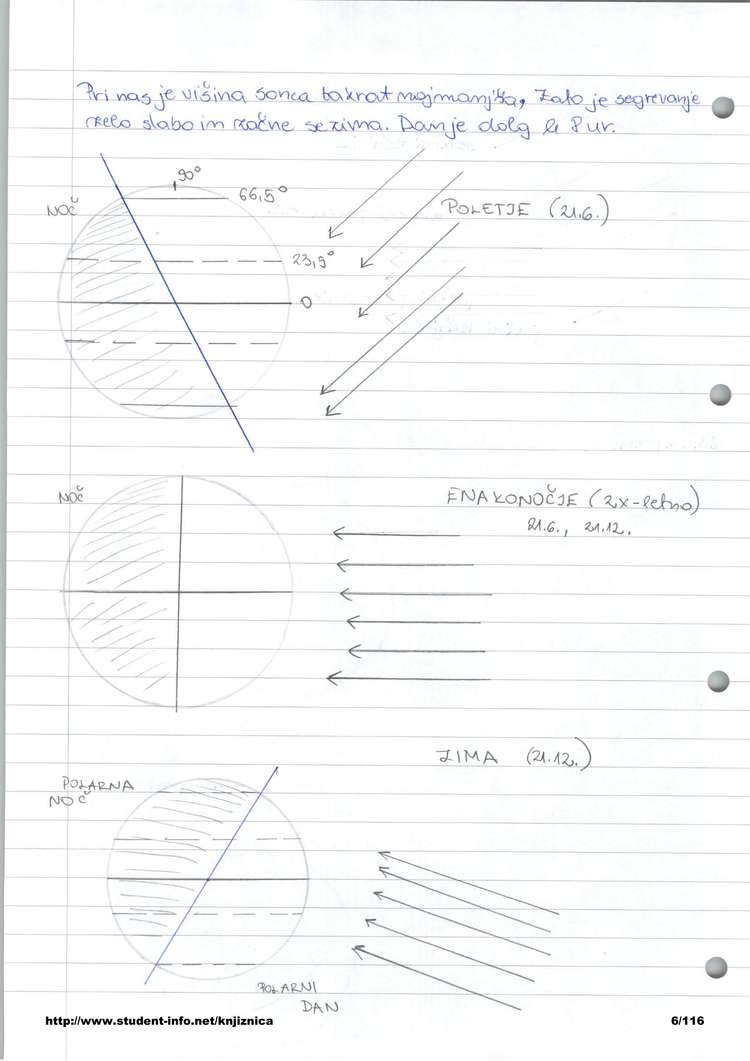 Pri nas je višina sonca takrat najmanjša, zato je segrevanje
zelo slabo in začne se zima. Dan je dolg le 8 ur.
90°
66,5°
NOČ
POLETJE (21.6.)
23,9°
0
NOČ
ENAKONOČJE (2x-letno)
21.6., 21.12.
ZIMA (21.12.)
POLARNA
NOČ
POLARNI
DAN
http://www.student-info.net/knjiznica
6/116